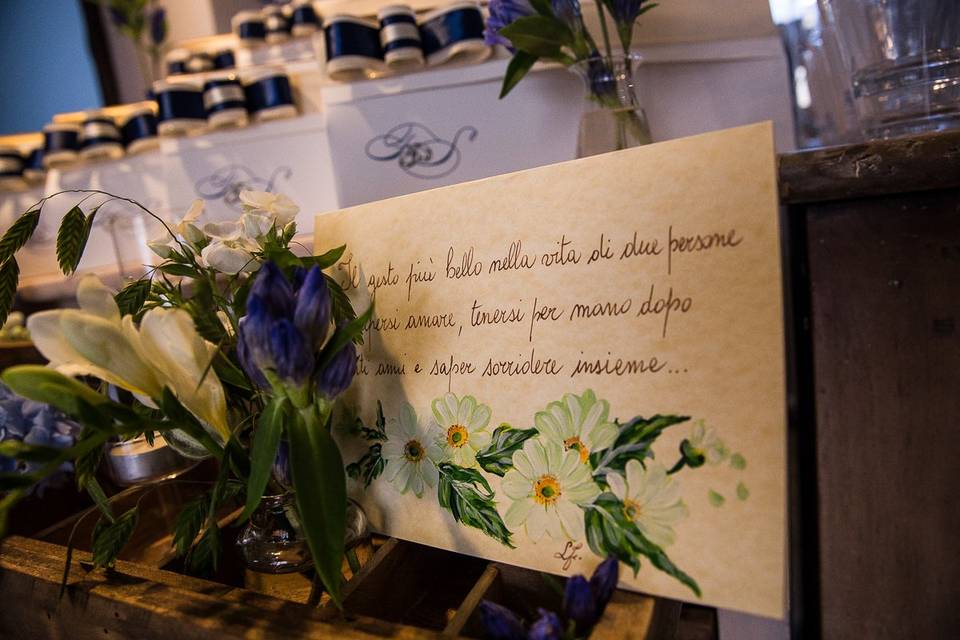 Il gesto più bello nella vita di due persone
persi amare, tenersi per mano dopo
ti anni e saper sorridere insieme...
L.F.